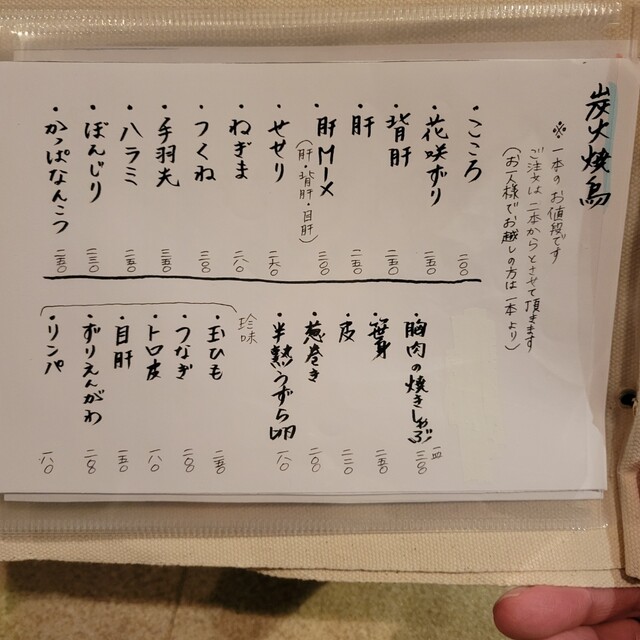 炭火焼鳥
※一本のお値段です
ご注文は二本からとさせて頂きます
(お一人様でお越しの方は一本より)
・こころ 二〇〇
・花咲ずり 二五〇
・背肝 二五〇
・肝 二五〇
・肝MIX 三〇〇
(肝・背肝・目肝)
・せせり 二六〇
・ねぎま 二八〇
・つくね 三〇〇
・手羽先 三五〇
・ハラミ 二五〇
・ぼんじり 二三〇
・かっぱなんこつ 二五〇
・胸肉の焼きしゃぶ 一皿 三八〇
・笹身 二五〇
・皮 二二〇
・葱巻き 二八〇
・半熟うずら卵 一八〇
珍味
・玉ひも 二五〇
・つなぎ 二八〇
・トロ皮 一八〇
・目肝 二五〇
・ずりえんがわ 二八〇
・リンパ 一八〇